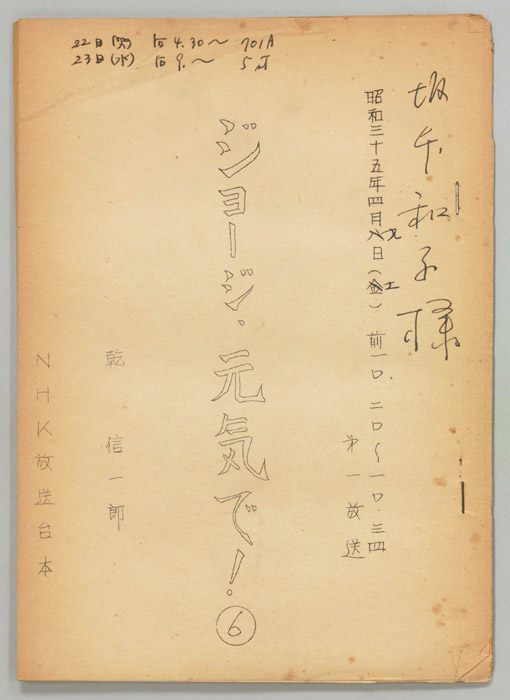 22日(火) 后4.30〜 701A
23日(水) 后9.〜 5st
坂本和子様
昭和三十五年四月九日(土) 前一〇.二〇〜一〇.三四
第一放送
ジョージ。元気で!。⑥
乾 信一郎
NHK放送台本